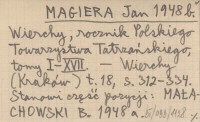 MAGIERA Jan 1948 b.
Wierchy, rocznik Polskiego
Towarzystwa Tatrzańskiego,
tomy I-XVII. - Wierchy
(Kraków) t. 18, s. 312-334.
Stanowi część pozycji: MAŁA-
CHOWSKI B. 1948 a.